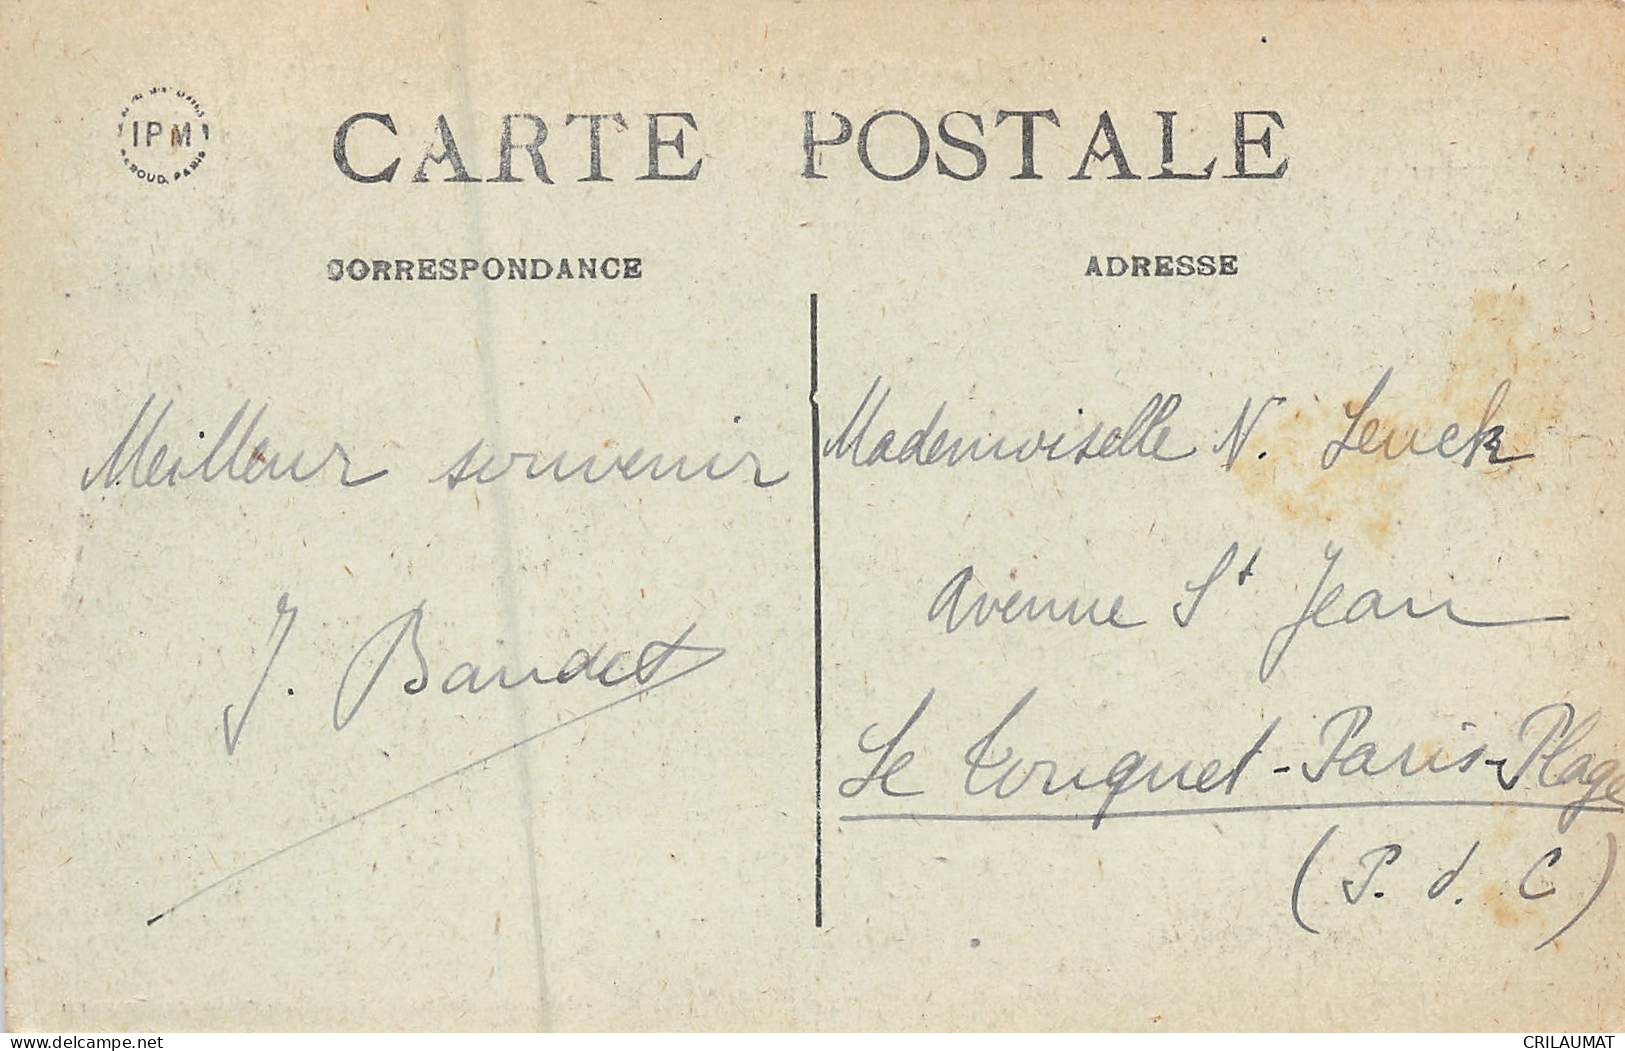 IPM
PARIS
CARTE POSTALE
CORRESPONDANCE
ADRESSE
Meilleur souvenir
J. Baudet
Mademoiselle N. Leuck
Avenue St Jean
Le Touquet-Paris-Plage
(P. d. C)
www.delcampe.net
CRILAUMAT